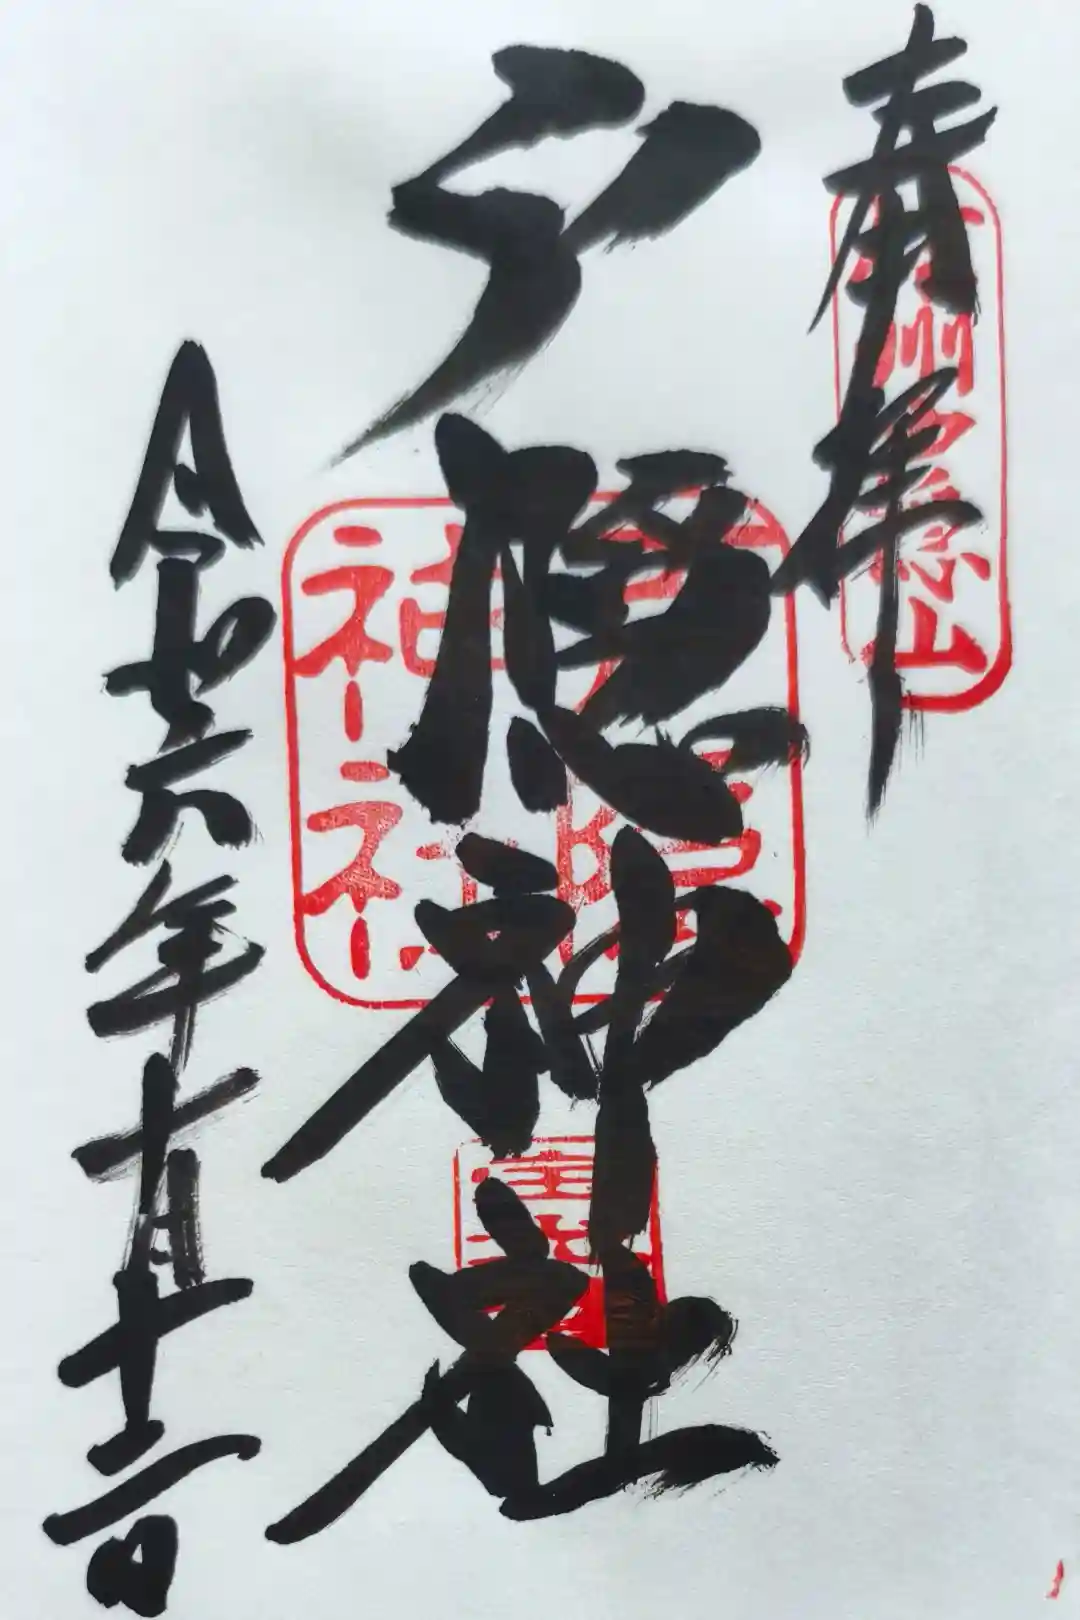 奉拝
信州戸隠山
戸隠神社
戸隠神社
令和六年十月十二日